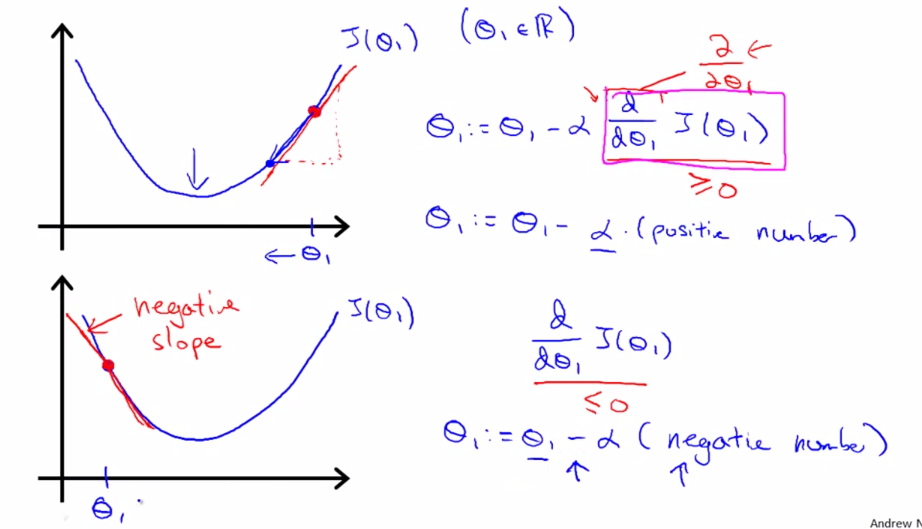 J(θ₁) (θ₁ ∈ ℝ)
∂/∂θ₁
θ₁ := θ₁ - α d/dθ₁ J(θ₁)
≥ 0
θ₁ := θ₁ - α · (positie number)
← θ₁
negative
slope
J(θ₁)
d/dθ₁ J(θ₁)
≤ 0
θ₁ := θ₁ - α (negatie number)
θ₁
Andrew N